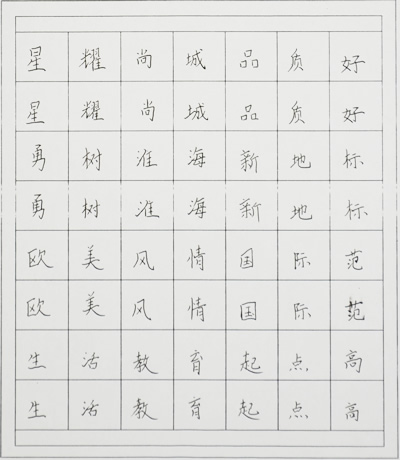 星耀尚城品质好
星耀尚城品质好
勇树淮海新地标
勇树淮海新地标
欧美风情国际范
欧美风情国际范
生活教育起点高
生活教育起点高